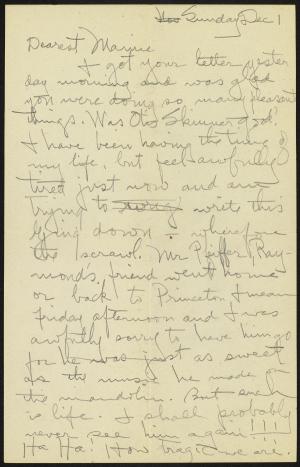 Sunday Dec 1
Dearest Mamie
I got your letter yester
day morning and was glad
you were doing so many pleasant
things. Was Otis Skinner good?
I have been having the time of
my life, but feel awfully
tired just now and am
trying to write this
lying down – wherefore
the scrawl. Mr Pfeiffer, Ray-
mond's friend went home
or back to Princeton I mean
Friday afternoon and I was
awfully sorry to have him go
for he was just as sweet
as the music he made on
the mandolin. But such
is life. I shall probably
never see him again!!!
Ha Ha! How tragic we are.